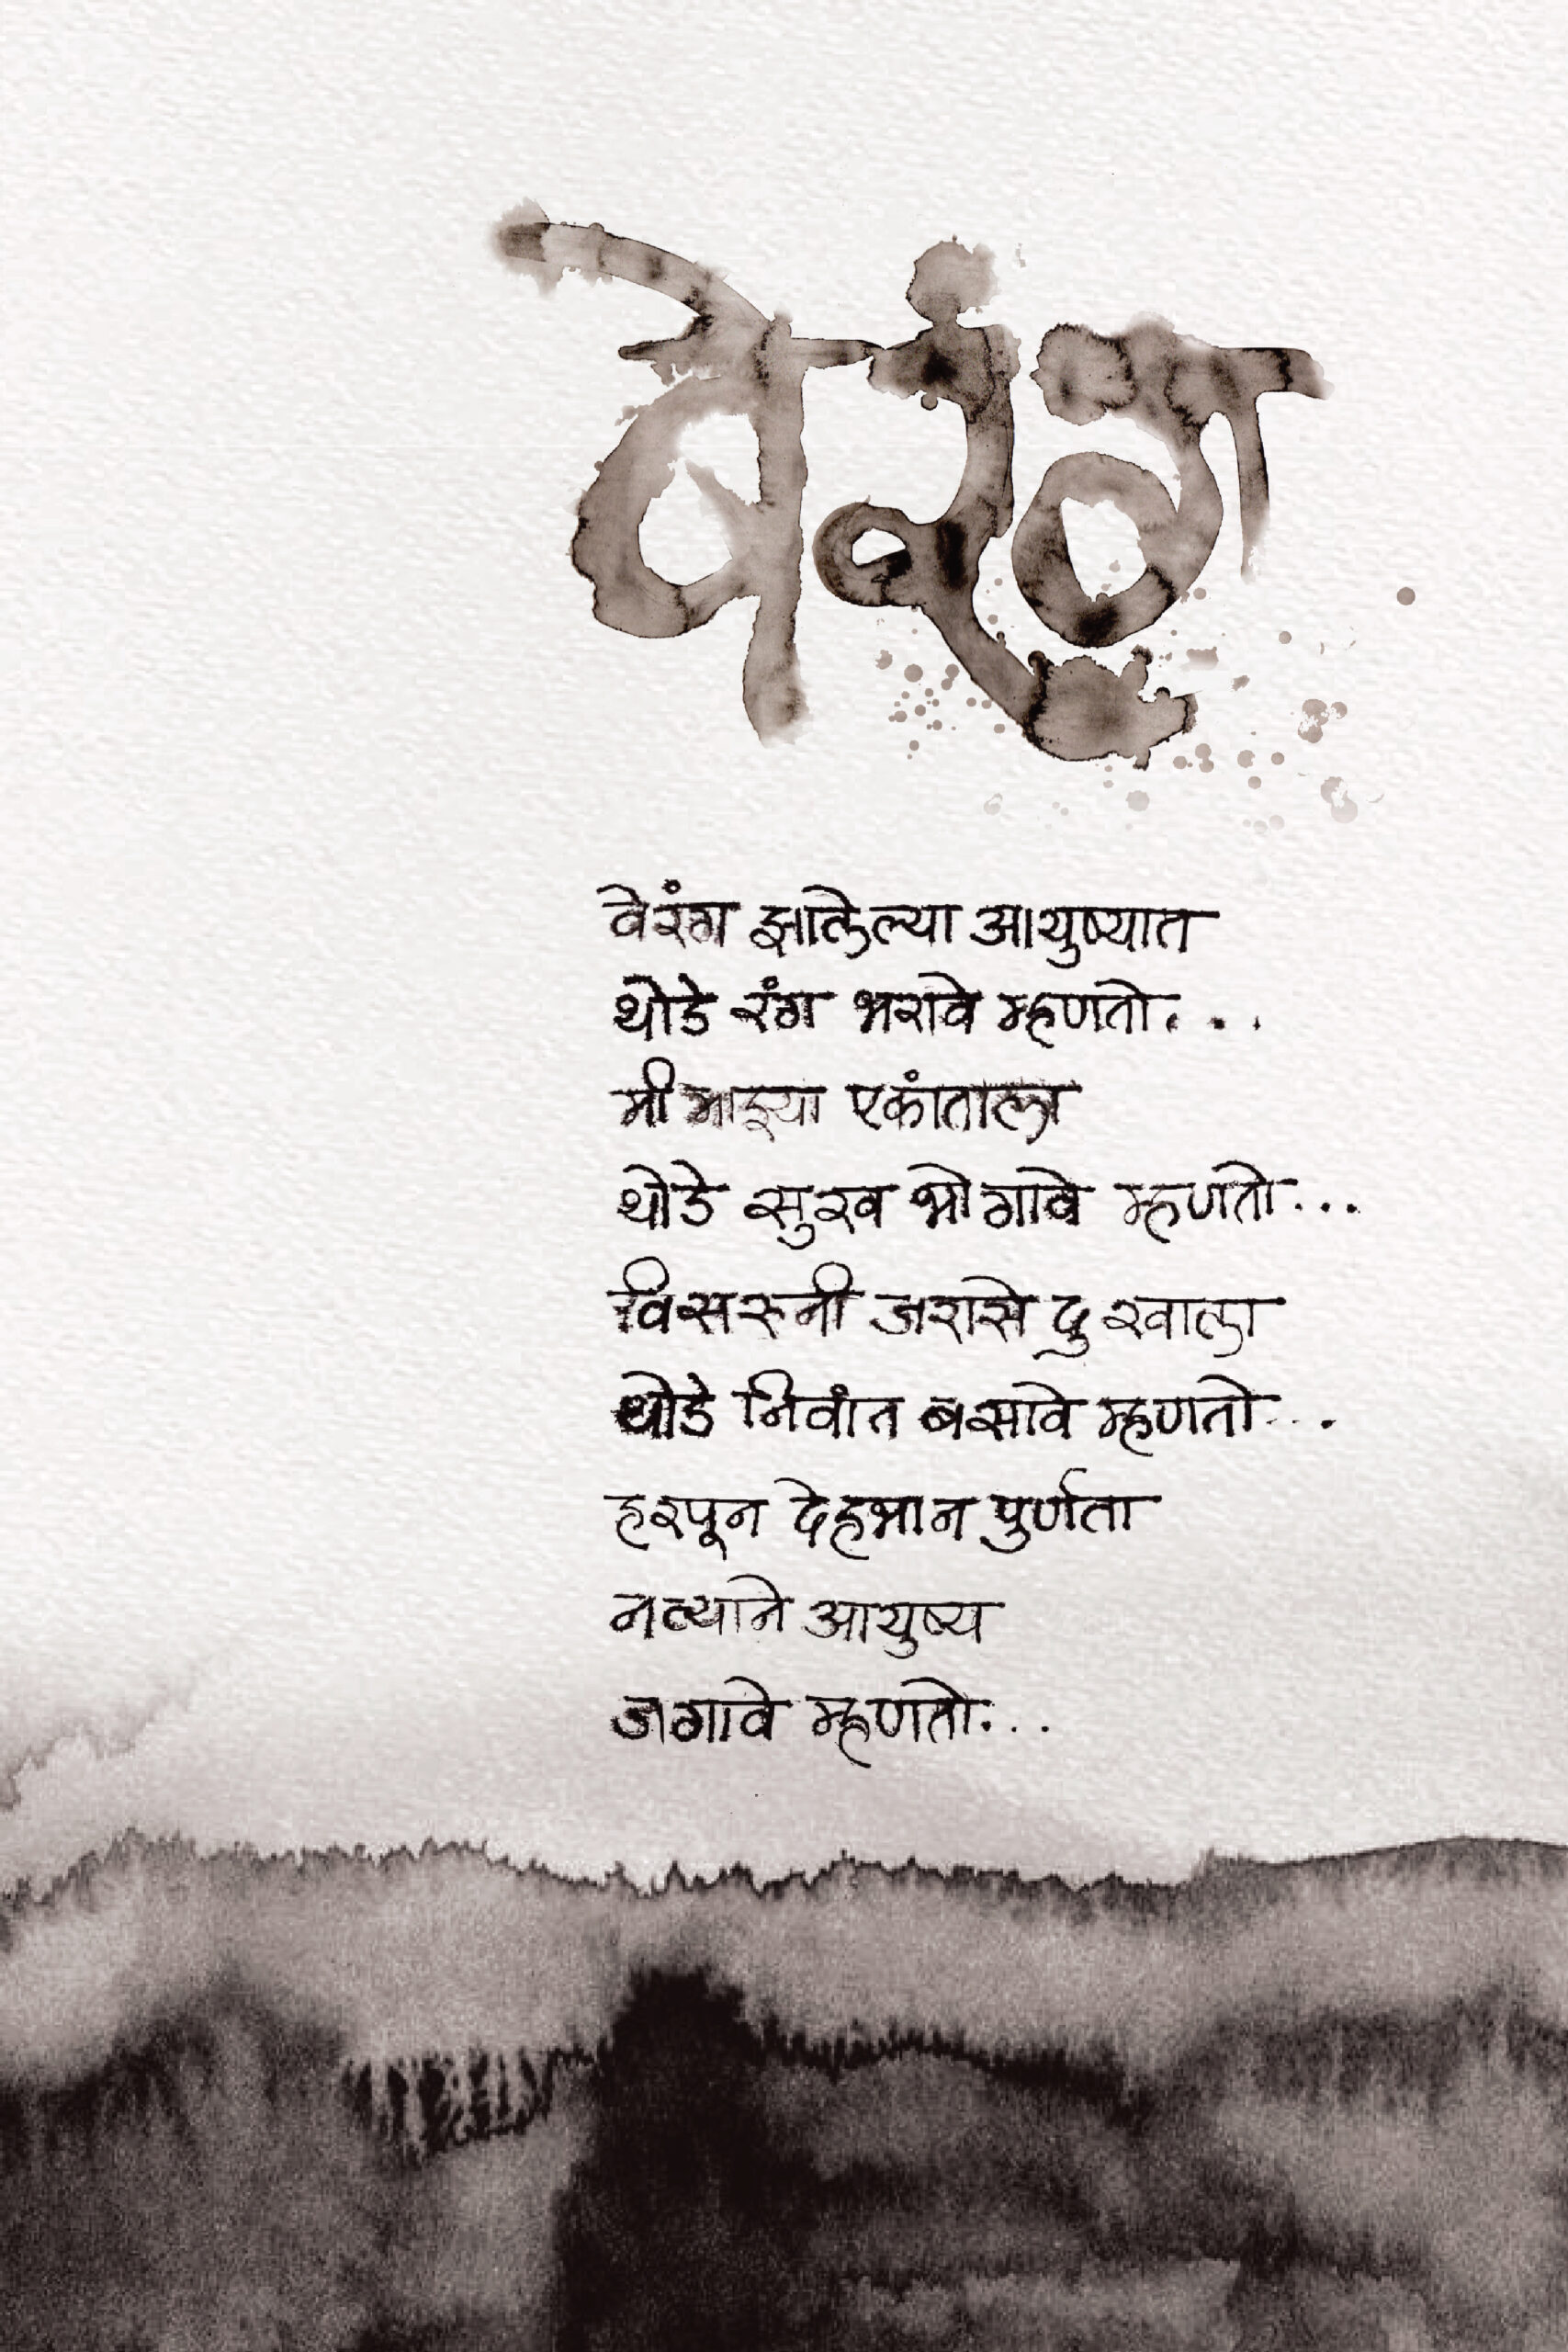 बेरंग
बेरंग झालेल्या आयुष्यात
थोडे रंग भरावे म्हणतो...
मी माझ्या एकांताला
थोडे सुख भोगावे म्हणतो...
विसरुनी जरासे दुखाला
थोडे निवांत बसावे म्हणतो...
हरपून देहभान पुर्णता
नव्याने आयुष्य
जगावे म्हणतो...